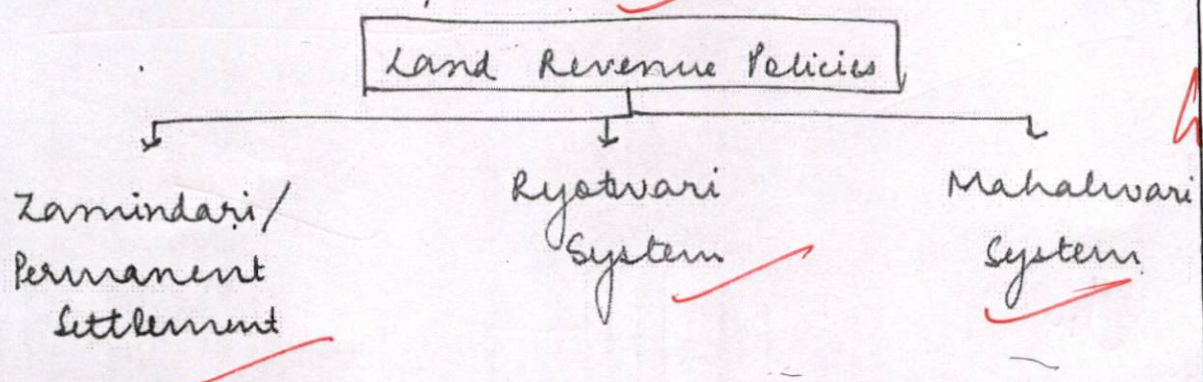 Land Revenue Policies
Zamindari/
Permanent
Settlement
Ryotwari
System
Mahalwari
System